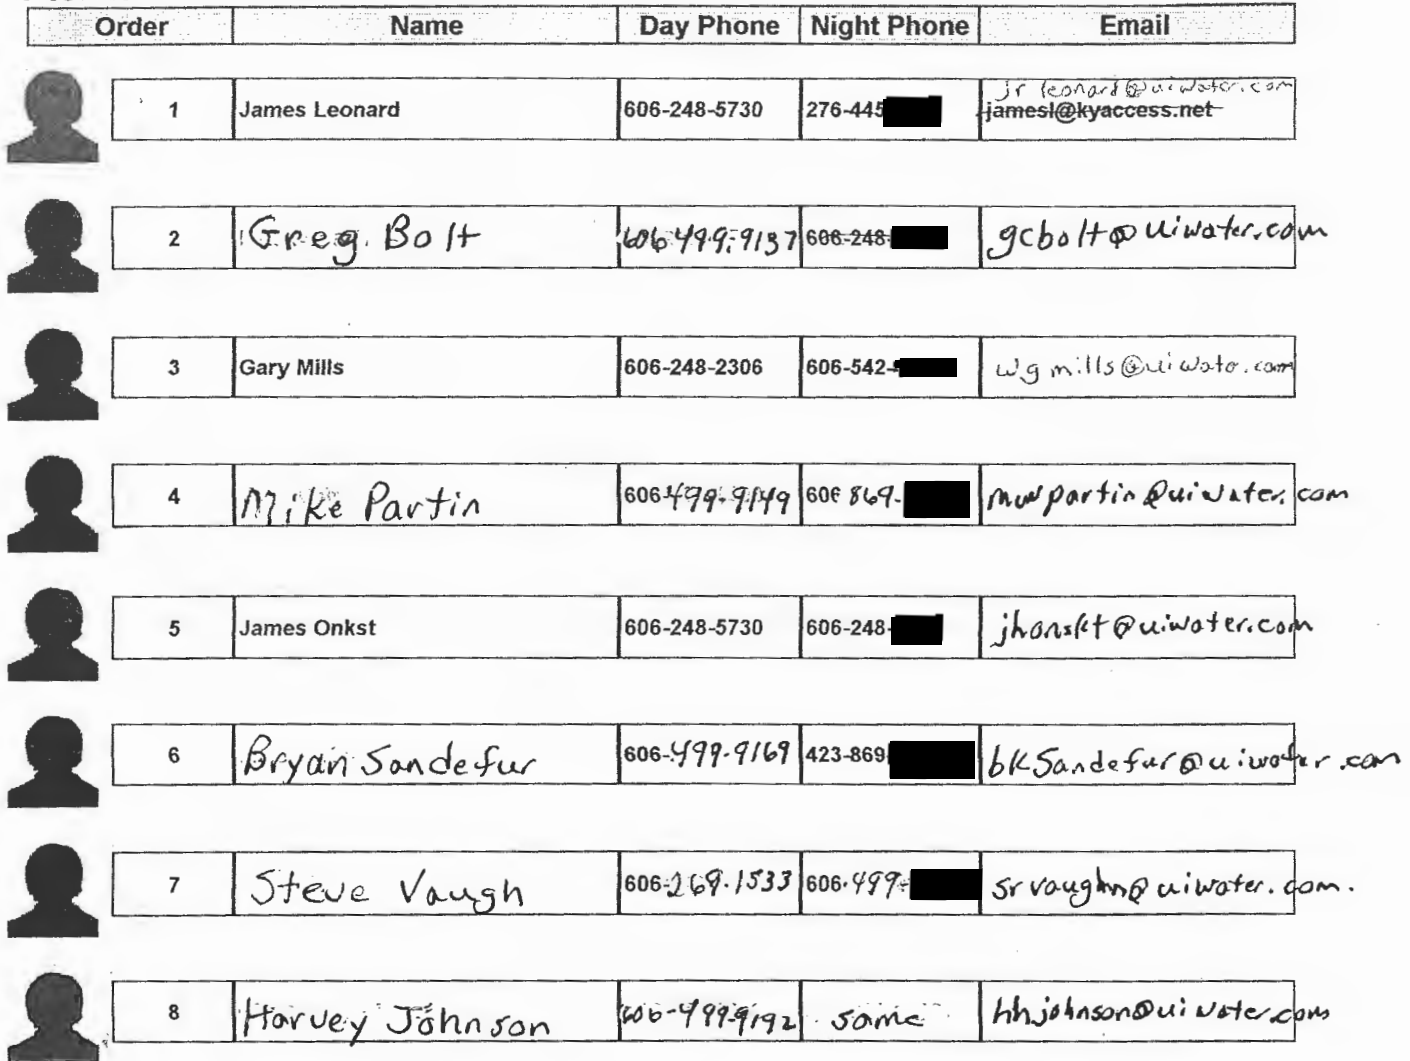 Order Name Day Phone Night Phone Email
jrleonard@uiwater.com
1 James Leonard 606-248-5730 276-445 jamesl@kyaccess.net
2 Greg Bolt 606 499-9137 606-248- gcbolt@uiwater.com
3 Gary Mills 606-248-2306 606-542- wgmills@uiwato.com
4 Mike Partin 606-499-9149 606 869- mwpartin@uiwater.com
5 James Onkst 606-248-5730 606-248- jhonskt@uiwater.com
6 Bryan Sandefur 606-499-9169 423-869 bksandefur@uiwater.com
7 Steve Vaugh 606-269-1533 606-499- srvaughn@uiwater.com.
8 Harvey Johnson 606-499-9192 same hhjohnson@uiwater.com